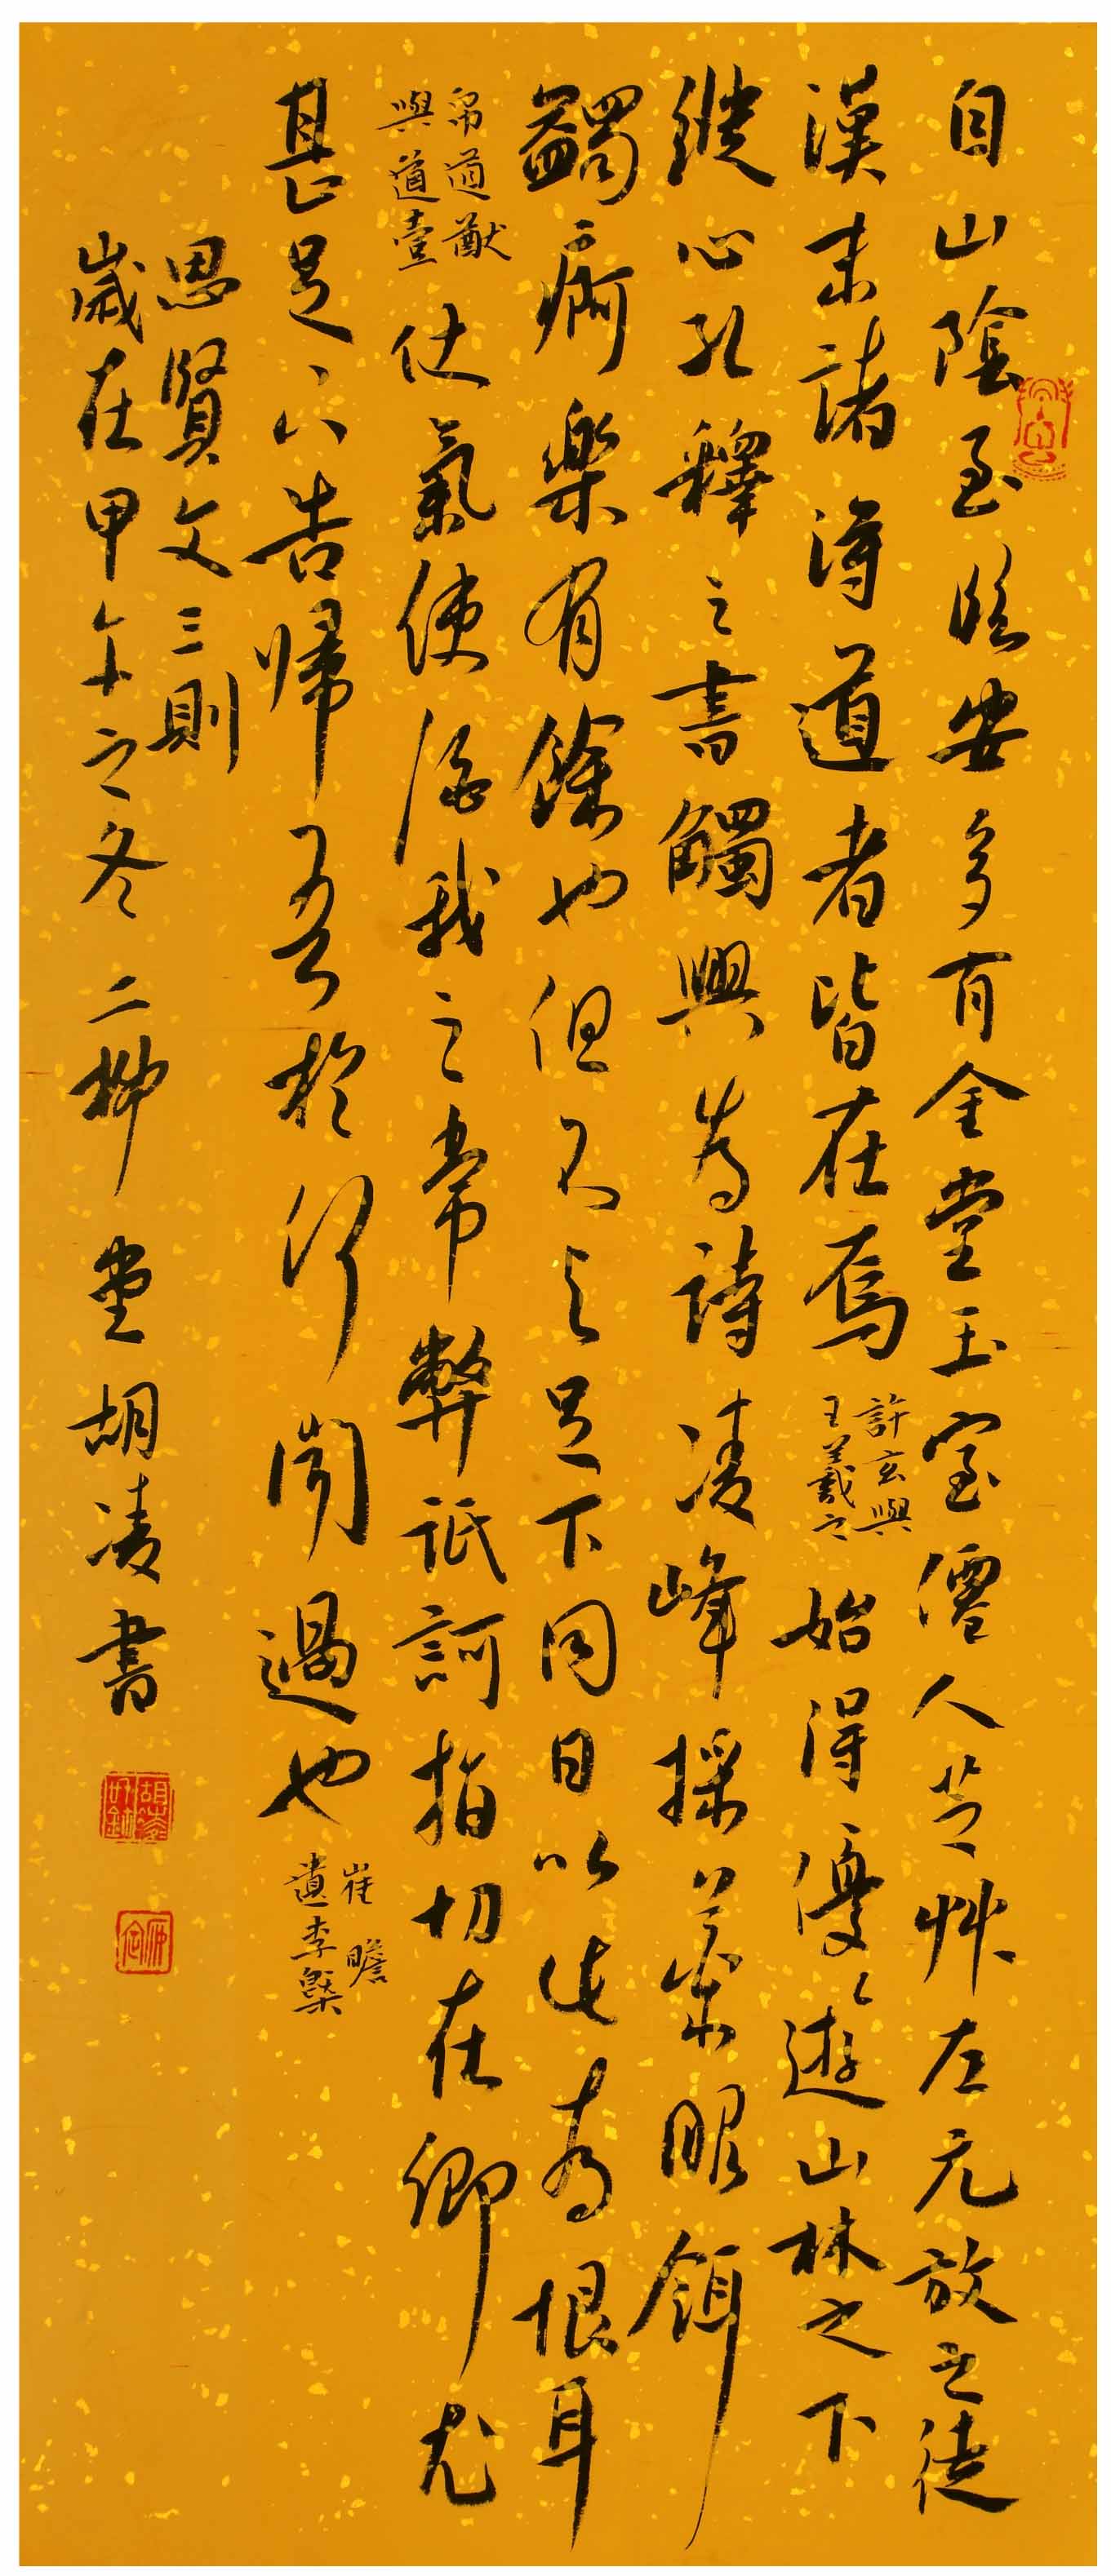 自山陰至臨安多有金堂玉室僊人芝艸左元放之徒
漢末諸得道者皆在焉
許玄與
王羲之
始得優〻遊山林之下
縱心孔釋之書觸興為詩凌峰採藥服餌
蠲痾樂有餘也但不與足下同日以此為恨耳
帛道猷
與道壹
仗氣使酒我之常弊詆訶指切在卿尤
甚足下告歸吾於何聞過也
崔瞻
遺李槩
思賢文三則
歲在甲午之冬二柳堂胡凌書